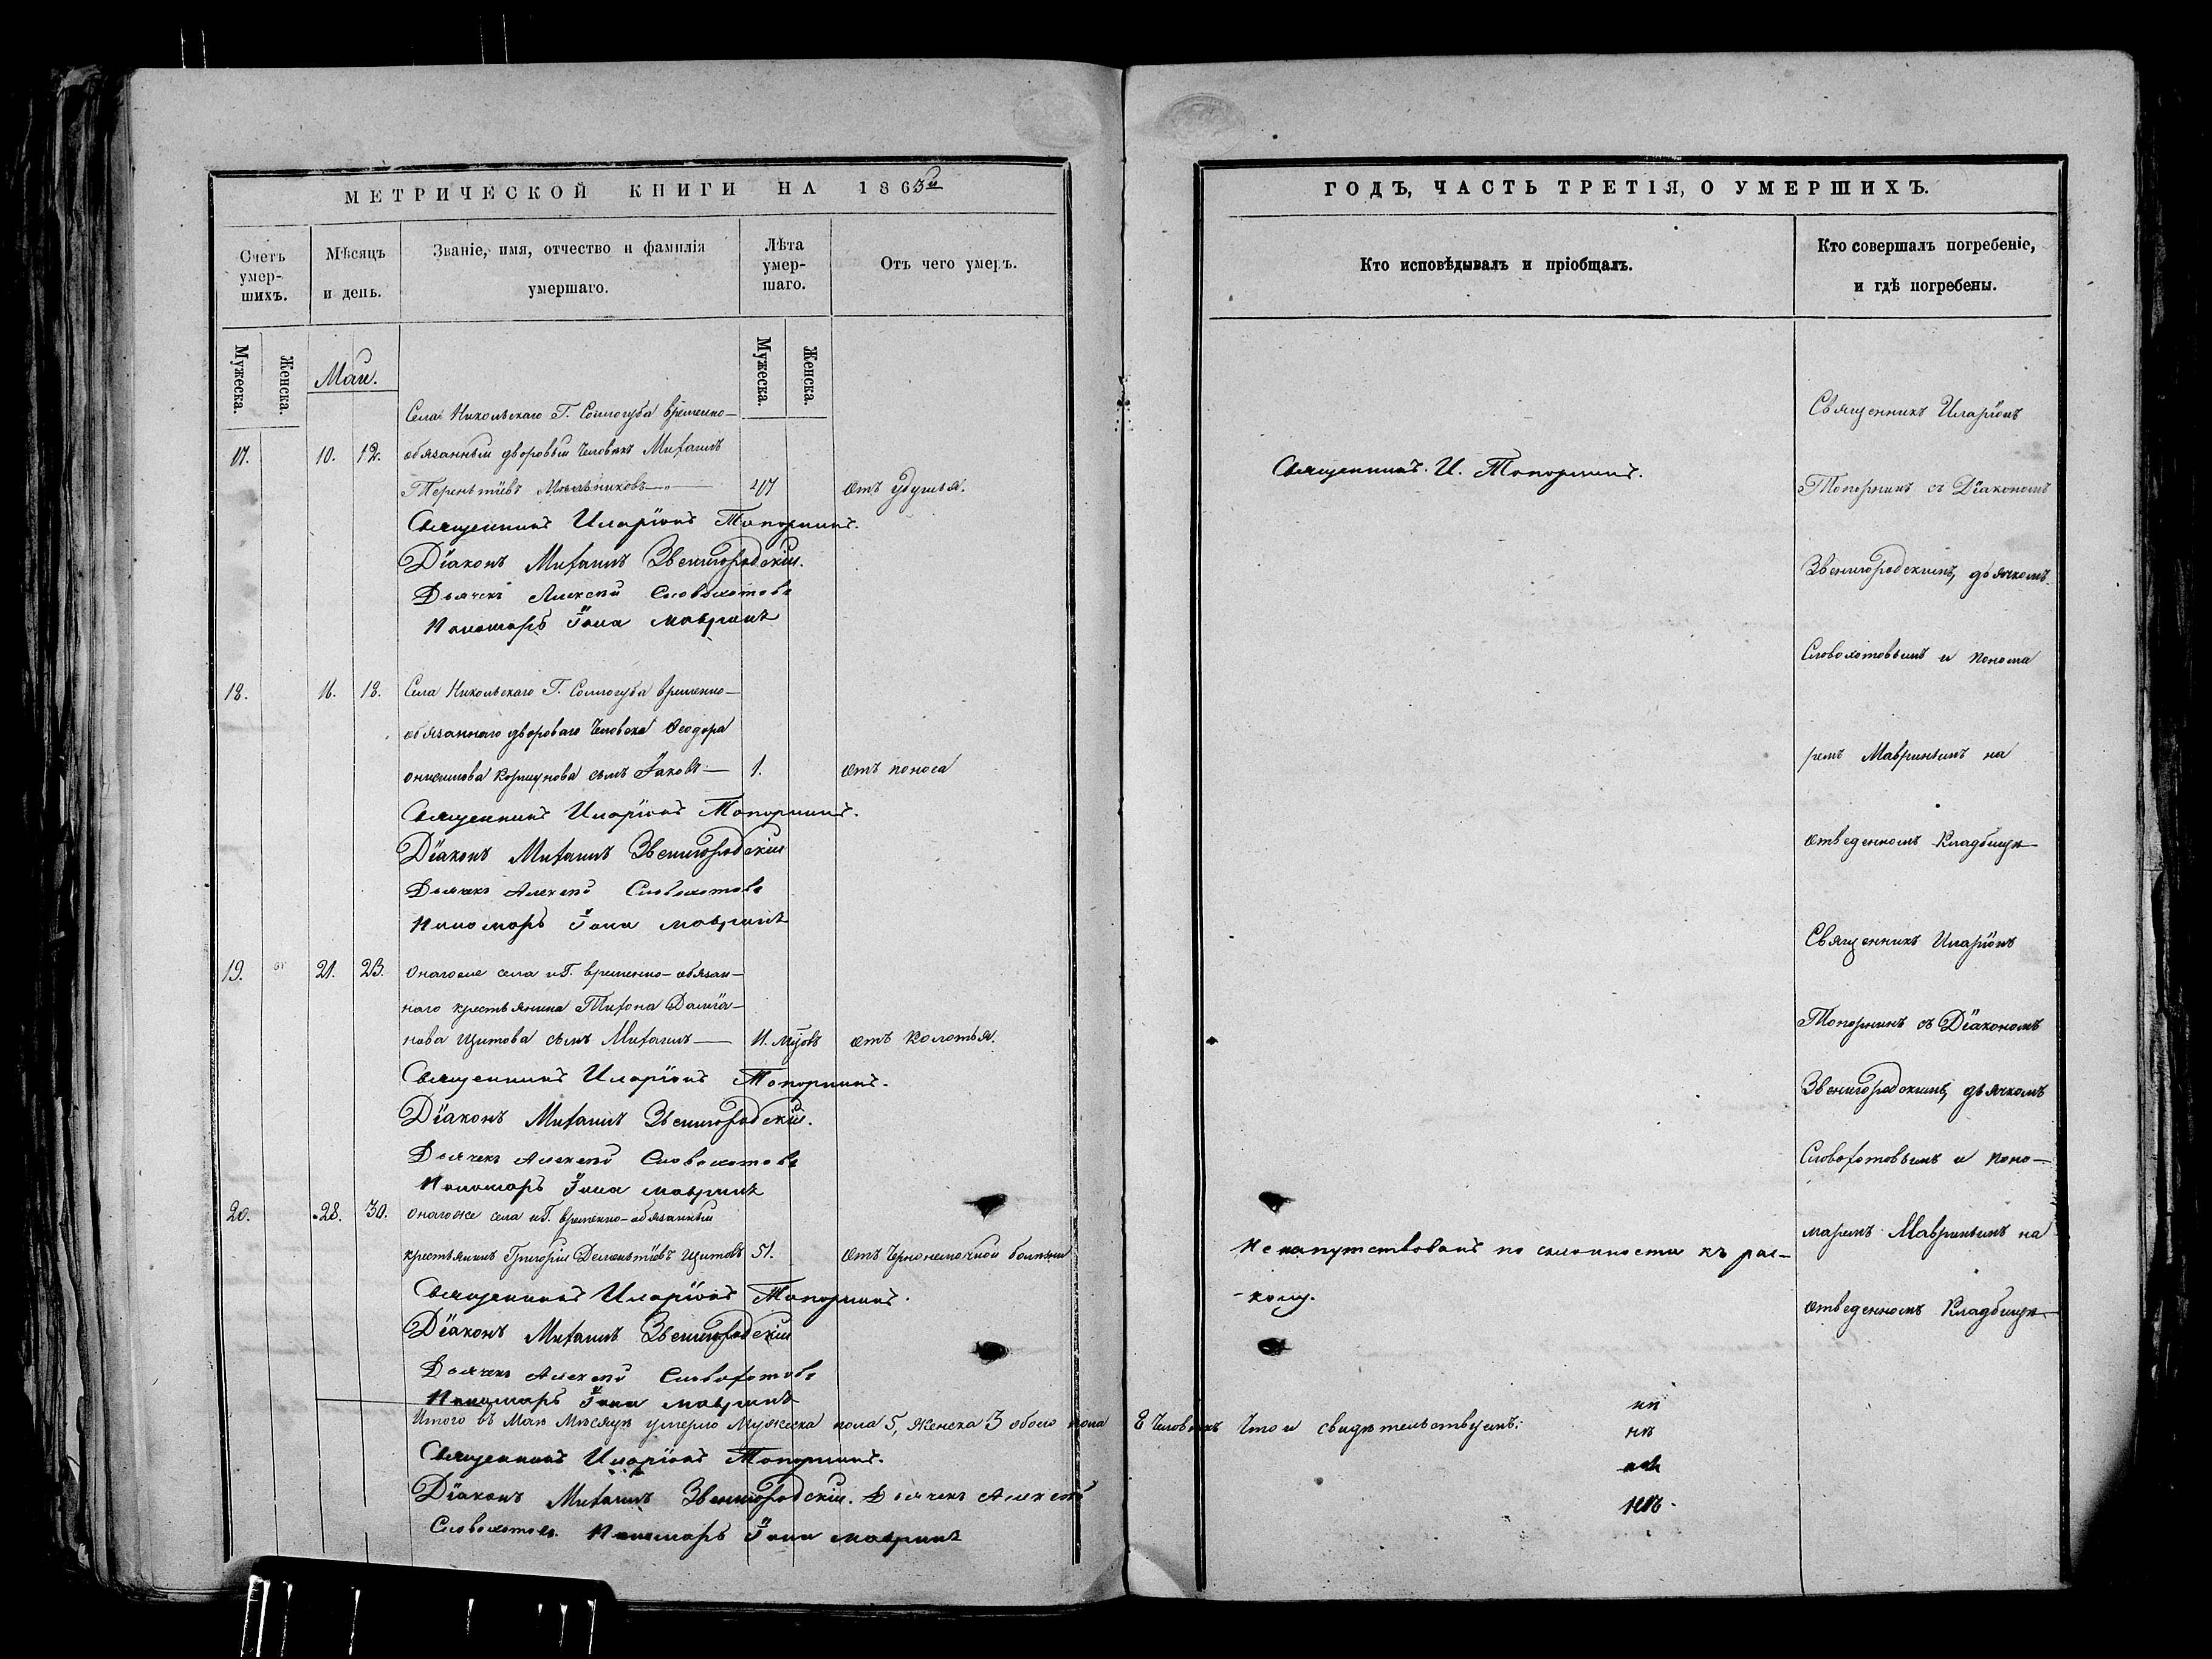 МЕТРИЧЕСКОЙ КНИГИ НА 1863й
Счетъ умер-шихъ.
Мѣсяцъ и день.
Званіе, имя, отчество и фамилія умершаго.
Лѣта умер-шаго.
Отъ чего умеръ.
Мужеска.
Женска.
Маи.
Мужеска.
Женска.
Села Никольскаго Г. Соллогуба временно-
17. 10. 12. обязанный дворовый человѣкъ Михаилъ
Терентіевъ Мельниковъ 47 отъ удушья.
Священникъ Иларіонъ Топорнинъ.
Діаконъ Михаилъ Звенигородскій.
Дьячекъ Алексѣй Словохотовъ
Пономарь Іона Мавринъ
18. 16. 18. Села Никольскаго Г. Соллогуба временно-
обязаннаго двороваго человѣка Ѳеодора
Онисимова Коршунова сынъ Іаковъ 1. отъ поноса
Священникъ Иларіонъ Топорнинъ.
Діаконъ Михаилъ Звенигородскій
Дьячекъ Алексѣй Словохотовъ
Пономарь Іона Мавринъ
19. 21. 23. Онагоже села и Г. временно-обязан-
наго крестьянина Тихона Даміа-
нова Щитова сынъ Михаилъ отъ колотья.
Священникъ Иларіонъ Топорнинъ.
Діаконъ Михаилъ Звенигородскій.
Дьячекъ Алексѣй Словохотовъ
Пономарь Іона Мавринъ
20. 28. 30. Онагоже села и Г. временно-обязанный
крестьянинъ Григорій Дементіевъ Щитовъ 51. отъ чернонемочной болѣзни
Священникъ Иларіонъ Топорнинъ.
Діаконъ Михаилъ Звенигородскій
Дьячекъ Алексѣй Словохотовъ
Пономарь Іона Мавринъ
Итого въ Маѣ Мѣсяцѣ умерло Мужеска пола 5, Женска 3 обоего пола 8 человѣкъ Что и свидѣтельствуемъ:
Священникъ Иларіонъ Топорнинъ.
Діаконъ Михаилъ Звенигородскій. Дьячекъ Алексѣй
Словохотовъ. Пономарь Іона Мавринъ
ГОДЪ, ЧАСТЬ ТРЕТІЯ, О УМЕРШИХЪ.
Кто исповѣдывалъ и пріобщалъ.
Кто совершалъ погребеніе, и гдѣ погребены.
Священникъ И. Топорнинъ.
Не напутствованъ по склонности къ рас-
колу.
Священникъ Иларіонъ
Топорнинъ съ Діакономъ
Звенигородскимъ, дьячкомъ
Словохотовымъ и понома
ремъ Мавринымъ на
отведенномъ кладбищѣ
Священникъ Иларіонъ
Топорнинъ съ Діакономъ
Звенигородскимъ, дьячкомъ
Словохотовымъ и поно-
маремъ Мавринымъ на
отведенномъ кладбищѣ